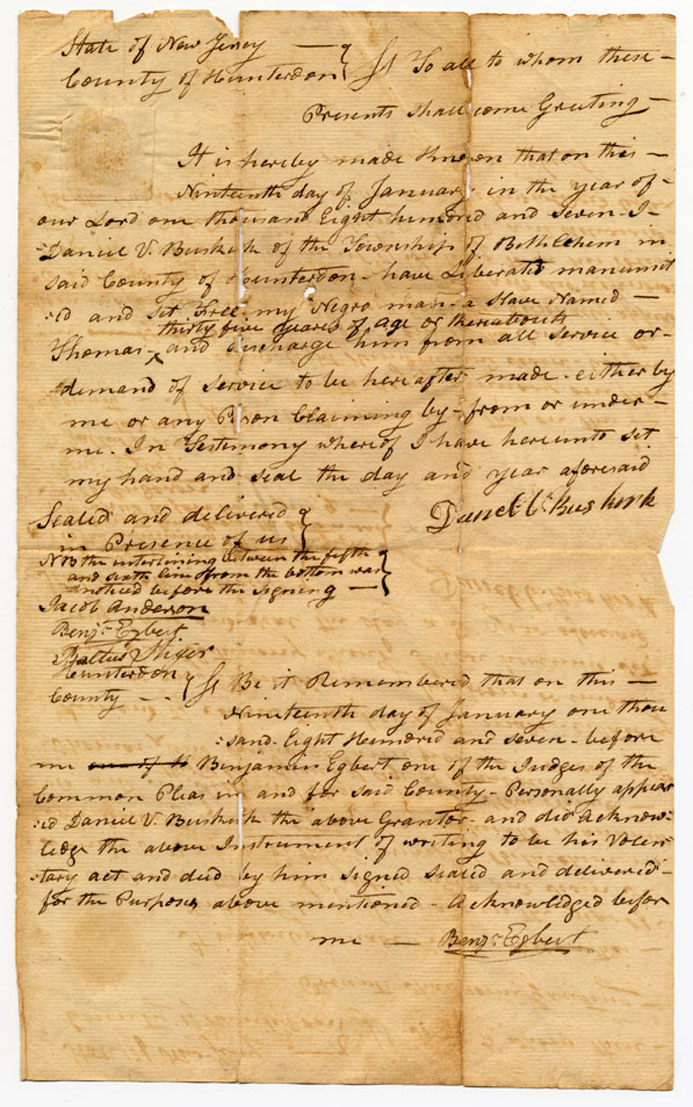 State of New Jersey —
County of Hunterdon } Ss To all to whom these —
Presents shall come Greeting —
It is hereby made Known that on this —
Ninteenth day of January in the year of -
our Lord one thousand Eight hundred and seven - I -
Daniel V. Buskirk of the Township of Bethlehem in
said County of Hunterdon - have Liberated manumit
:ed and set Free my Negro man - a Slave Named —
thirty five years of age or thereabouts
Thomas ^ and discharge him from all service or -
demand of service to be hereafter made - either by
me or any Person Claiming by - from or under -
me. In Testimony whereof I have hereunto set
my hand and seal the day and year aforesaid
Daniel V Buskirk
Sealed and delivered
in Presence of us
NB the interlining between the fifth
and sixth lines from the bottom was
noticed before the signing —
Jacob Anderson
Benj. Egbert
Hunterdon
County - - } Ss Be it Remembered that on this —
Nineteenth day of January one thou
:sand Eight Hundred and seven - before
me Benjamin Egbert one of the Judges of the
Common Pleas in and for said County - Personally appear
:ed Daniel V. Buskirk the above Grantor - and did Acknow-
:ledge the above Instrument of writing to be his Volen-
:tary act and deed by him signed sealed and delivered -
for the Purposes above mentioned - Acknowledged before
me — Benj. Egbert